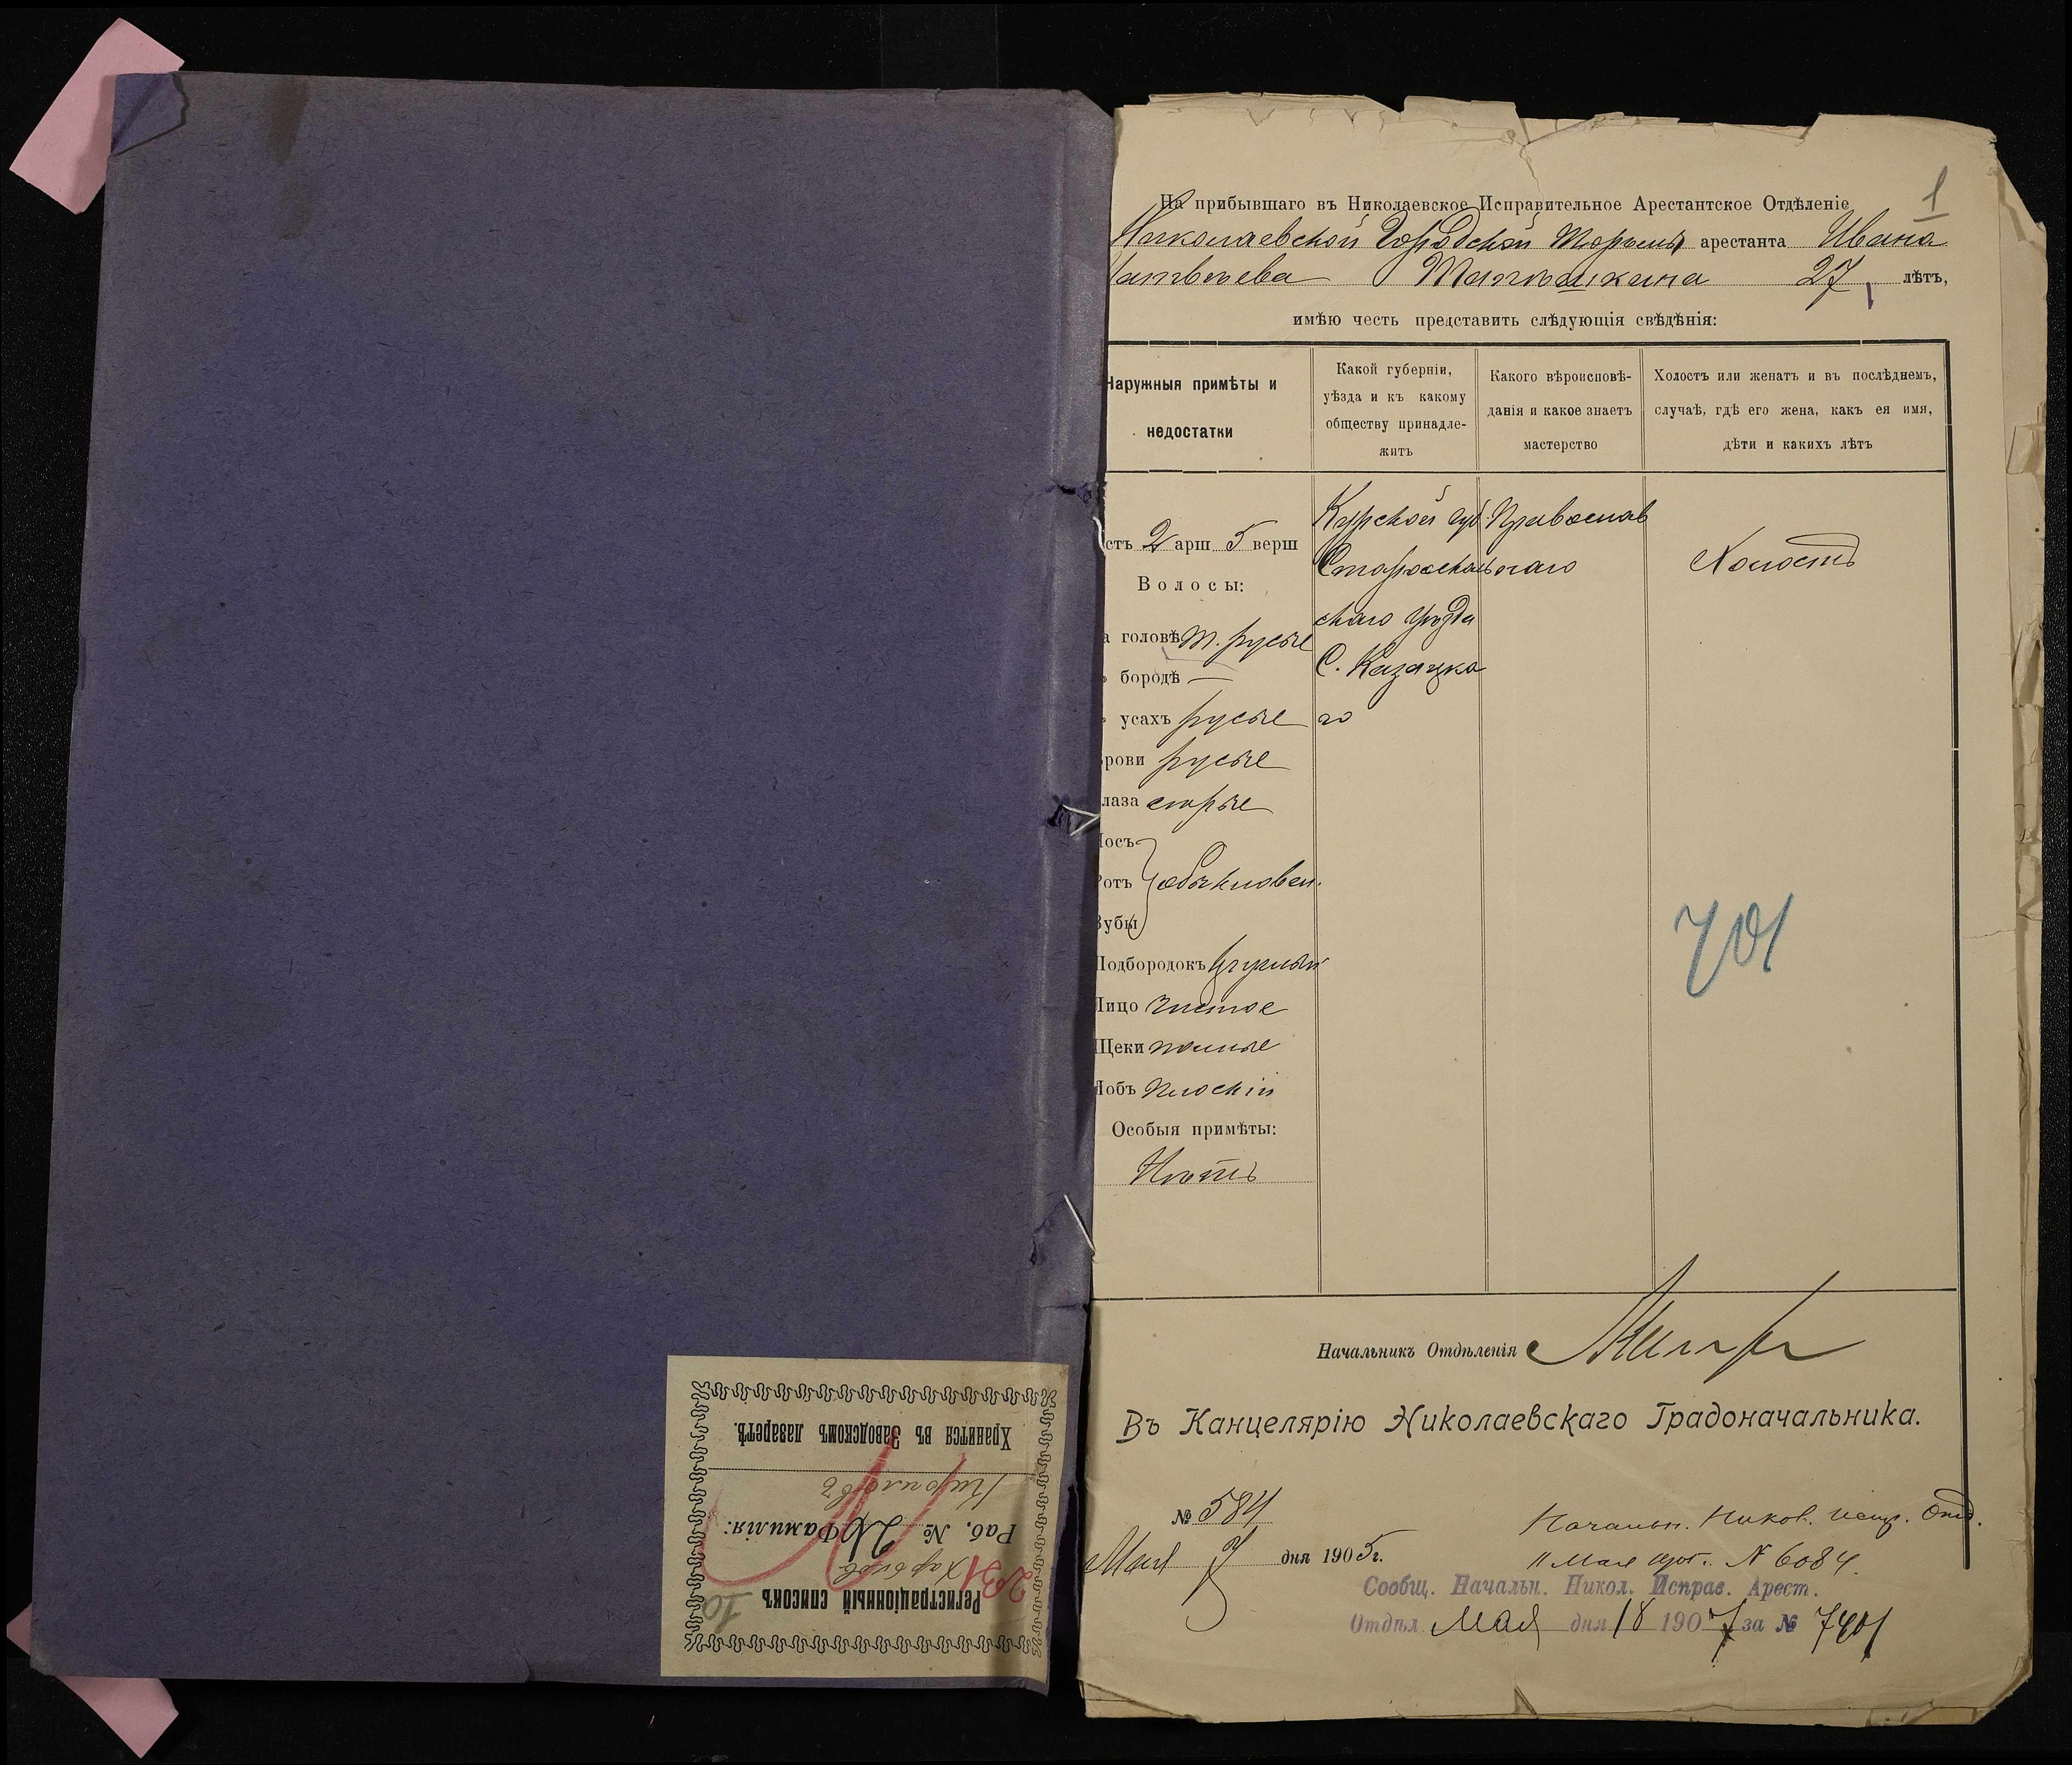 1
На прибывшаго въ Николаевское Исправительное Арестантское Отдѣленіе
Николаевской Городской Тюрьмы арестанта Ивана
27 лѣтъ,
имѣю честь представить слѣдующія свѣдѣнія:
Наружныя примѣты и
недостатки
Какой губерніи,
уѣзда и къ какому
обществу принадле-
житъ
Какого вѣроисповѣ-
данія и какое знаетъ
мастерство
Холостъ или женатъ и въ послѣднемъ,
случаѣ, гдѣ его жена, какъ ея имя,
дѣти и какихъ лѣтъ
стъ 2 арш 5 верш
Волосы:
а головѣ т. русые
бородѣ —
усахъ русые
рови русые
лаза сѣрые
Носъ
Ротъ обыкновен.
Зубы
Подбородокъ круглый
Лицо чистое
Щеки полные
Лобъ плоскій
Особыя примѣты:
Нѣтъ
Курской губ
Староосколь
скаго уѣзда
С. Казацка
го
Православ
наго
Холостъ
701
Начальникъ Отдѣленія
Въ Канцелярію Николаевскаго Градоначальника.
№ 584
Мая 7 дня 1905г.
Начальн. Никол. испр. Отд.
11 Мая 1905 г. № 6084.
Сообщ. Начальн. Никол. Исправ. Арест.
Отдѣл Мая дня 18 1907 за № 7401
Регистраціонный списокъ
10
231
Раб. № Фамилія:
Кириловъ
Хранится въ Заводскомъ лазаретѣ.